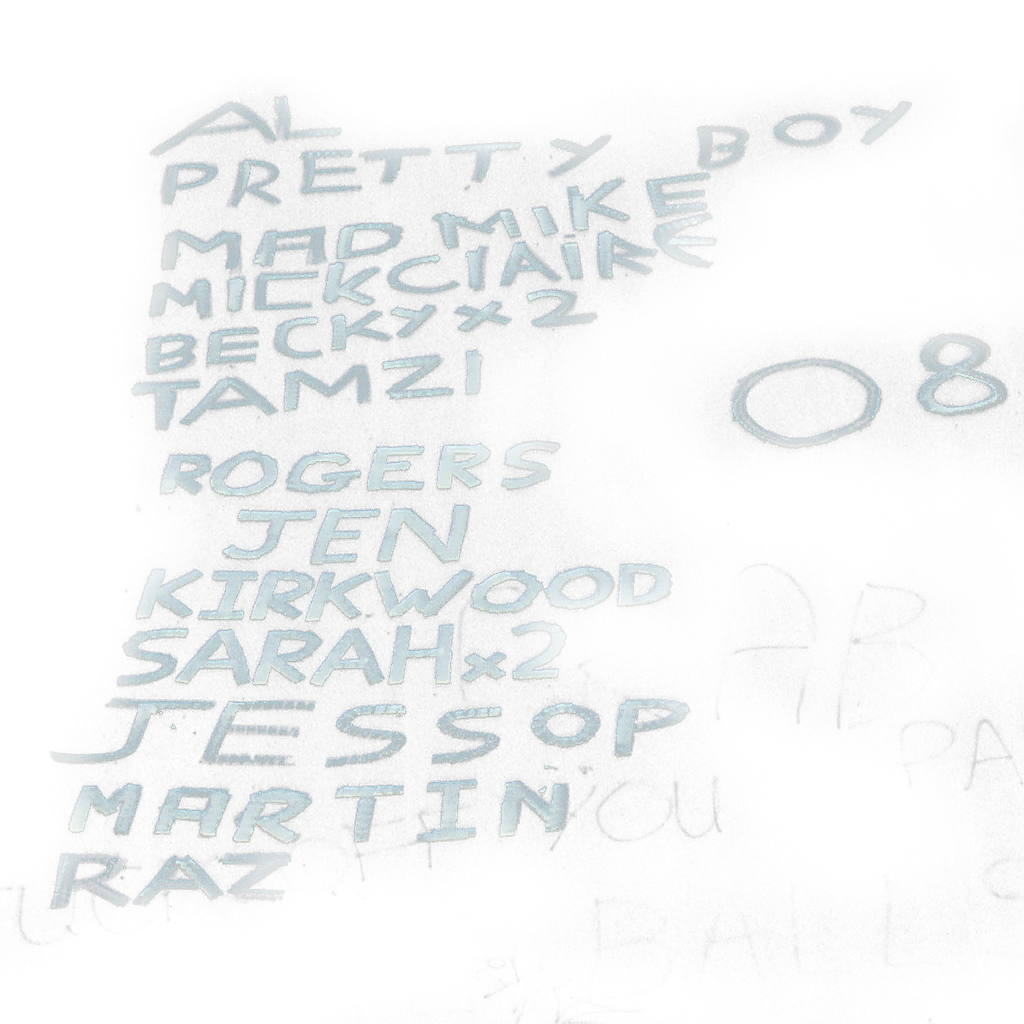 AL
PRETTY BOY
MAD MIKE
MICKCLAIRE
BECKY x 2
TAMZI
08
ROGERS
JEN
KIRKWOOD
SARAH x2
JESSOP
MARTIN
RAZ
AR
PA
YOU
BALL